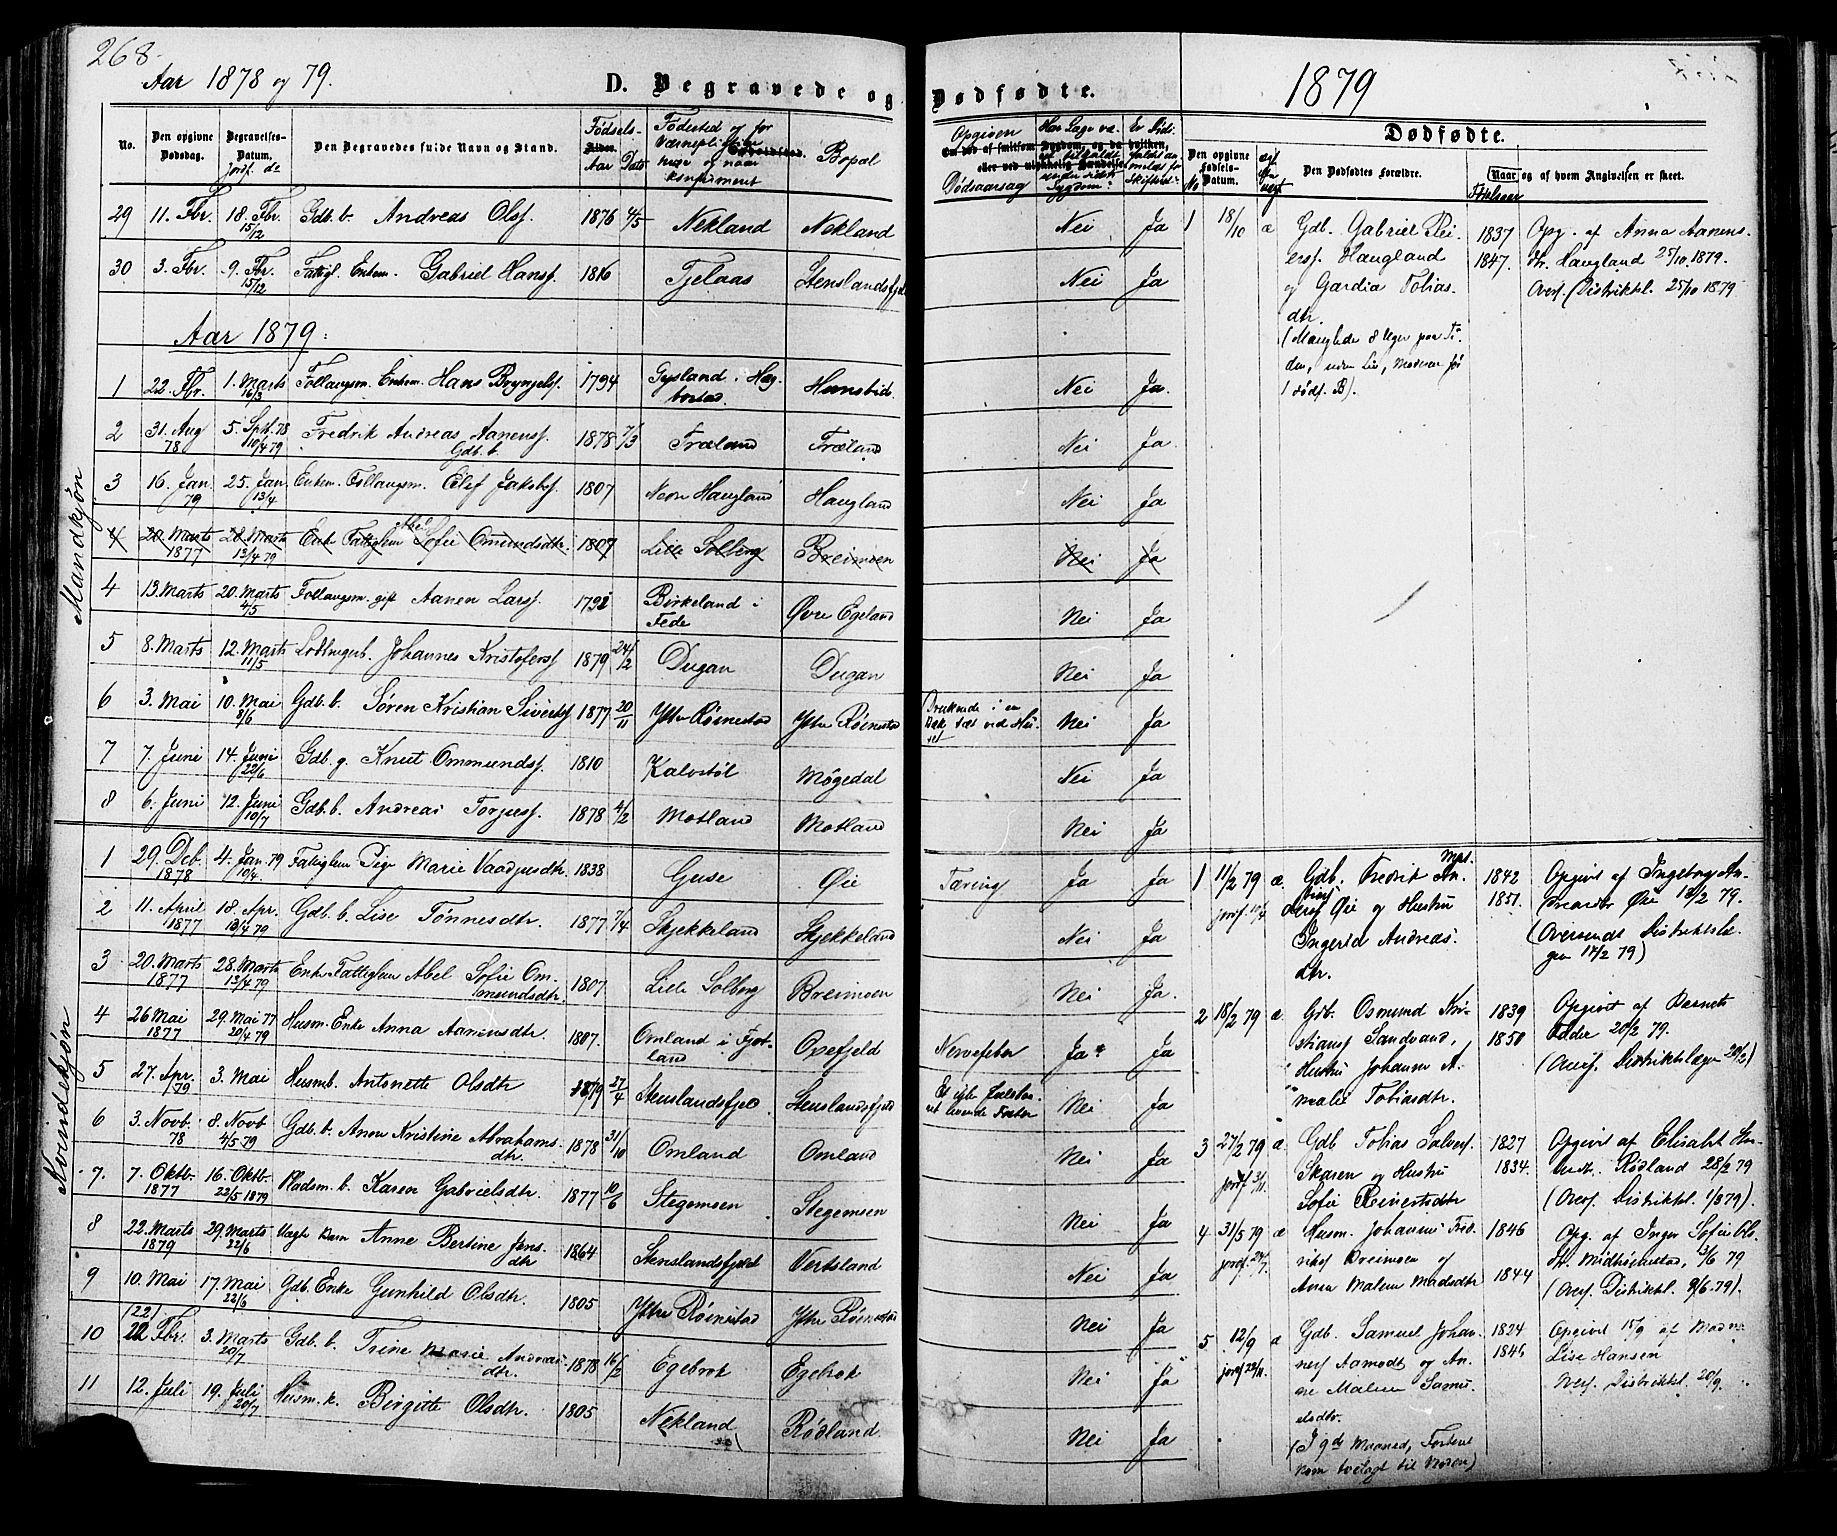 268.
Aar 1878 og 79.
D. Begravede og Dødfødte.
1879
No. Den opgivne Dødsdag. Begravelses-Datum. Jordf. do Den Begravedes fulde Navn og Stand. Fødsels- Aar Dato Fødested og Bopæl
Opgiven Dødsaarsag
Dødfødte.
No Den opgivne Fødsels-Datum. Den Dødfødtes Forældre. Naar og af hvem Angivelsen er skeet.
29 11. Fbr. 18. Fbr. 15/12 Gdb. b. Andreas Olsf. 1876 4/5 Nekland Nekland Nei Ja
30 3. Fbr. 9. Fbr. 15/12 Fattigl. Enkem. Gabriel Hansf. 1816 Tjelaas Stenslandsfjeld Nei Ja
Aar 1879:
Mandkjøn
1 22. Fbr. 1. Marts 16/3 Follaugsm. Enkem. Hans Brynjelsf. 1794 Gysland i Hægbostad Hunsbid. Nei Ja.
2 31. Aug 78 5. Spt. 78 10/4 79 Fredrik Andreas Aanensf. Gdb. b. 1878 7/3 Træland Træland Nei Ja.
3 16. Jan 79 25. Jan 13/4 Enkem. Follaugsm. Olef Jakobsf. 1807 Nedre Haugland Haugland Nei Ja
4 20. Marts 1877 28. Marts 13/4 79 Enke Fattiglem Abel Sofie Omundsdtr. 1807 Lille Solberg Breimoen Nei Ja
4 13. Marts 20. Marts 4/5 Follaugsm. gift Aanen Larsf. 1792 Birkeland i Fede Øvre Egeland Nei Ja
5 8. Marts 12. Marts 11/5 Johannes Kristofersf 1879 24/2 Dugan Dugan Nei Ja
6 3. Mai 10. Mai 8/6 Gdb. b. Søren Kristian Sivertsf 1877 20/11 Ytre Røinestad Ytre Røinestad Druknede i en Bæk tæt ved Huset Nei Ja
7 7. Juni 14. Juni 22/6 Gdb. g. Knut Ommundsf. 1810 Kalvstøl Møgedal Nei Ja
8 6. Juni 12. Juni 10/7 Gdb. b. Andreas Torjusf. 1878 4/2 Motland Motland Nei Ja
Kvindekjøn
1 29. Deb. 1878 4. Jan. 79 10/4 Fattiglem Pige Marie Vaadjusdtr. 1838 Guse Øie Tæring Ja Ja
2 11. April 1877 18. Apr. 13/4 79 Gdb. b. Lise Tønnesdtr 1877 7/4 Skjekkeland Skjekkeland Nei Ja
3 20. Marts 1877 28. Marts 13/4 79 Enke Fattiglem Abel Sofie Ommundsdtr. 1807 Lille Solberg Breimoen Nei Ja.
4 26 Mai 1877 29. Mai 77 20/4 79 Husm. Enke Anna Aanensdtr 1807. Omland i Fjotland Oxefjeld Nervefeber Ja Ja
5 27. Apr. 79 3. Mai Husmb. Antonette Olsdtr 1879 27/4 Stenslandsfjeld. Stenslandsfjeld Nei Ja
6 3. Novb. 78 8. Novb 4/5 79 Gdb. b. Anne Kristine Abrahamsdtr. 1878 31/10 Omland Omland Nei Ja
7. 7. Oktb. 1877 16. Oktb. 22/5 1879 Pladsm. b. Karen Gabrielsdtr. 1877 10/6 Stegemoen Stegemoen Nei Ja
8 22. Marts 1879 29. Marts 22/6 Uægte Barn Anne Bertine Jensdtr 1864 Stenslandsfjeld Vertsland Nei Ja
9 10. Mai 17. Mai 22/6 Gdb. Enke Gunhild Olsdtr. 1805 Ytre Røinestad Ytre Røinestad Nei Ja
10 (22) 22 Fbr. 3. Marts 20/7 Gdb. b. Trine Marie Andreasdtr. 1878 16/2 Egebrok Egebrok Nei Ja
11 12. Juli 19. Juli 20/7 Husm. k. Birgitte Olsdtr. 1805 Nekland Rødland Nei Ja
1 18/10 æ Gdb. Gabriel Reiersf. Haugland og Gardia Tobiasdtr. 1837 1847. Opg. af Anna Aanensdtr. Haugland 25/10 1879. Overf. (Distriktsl. 25/10 1879
(Manglede 8 Uger paa Tiden, uden Liv, 1 dødf. B).
1 11/2 79 æ. jordf. 10/4 Gdb. Fredrik Andersf Øie og Hustru Ingerid Andreasdtr. 1842 1851. Opgivet af Ingeborg Andreasdtr Øie 18/2 79. (Oversendt Distriktslægen 14/2 79)
2 18/2 79 æ Gdb. Osmund Kristiansf Sandvand, Hustru Johanne Amalie Tobiasdtr. 1839 1850 Opgivet af Bernet Odder 20/2 79. (Overf. Distriktslægen 20/2)
3 27/2 79 æ Gdb Tobias Salvesf Skaren og Hustru Sofie Reinertsdtr 1827 1834. Opgivet af Elisabt Rødland 28/2 79 (Overf. Distriktsl. 1/3 79).
4 31/5 79 æ jordf. 24/7. Husm. Johannes Fredriksf Breimoen og Anna Malene Madsdtr 1846 1844 Opg. af Inger Sofie Olsdtr. Midtrøinestad, 3/6 79 (Overf. Distriktsl. 9/6 79).
5 12/9 æ jordf 22/11. Gdb. Samuel Johannesf Aamodt og Anne Malene Samuelsdtr. 1824 1846 Opgivet 15/9 af Madme Lise Hansen Overf. Distriktsl. 20/9.
(I 9de Maaned, Fosteret kom